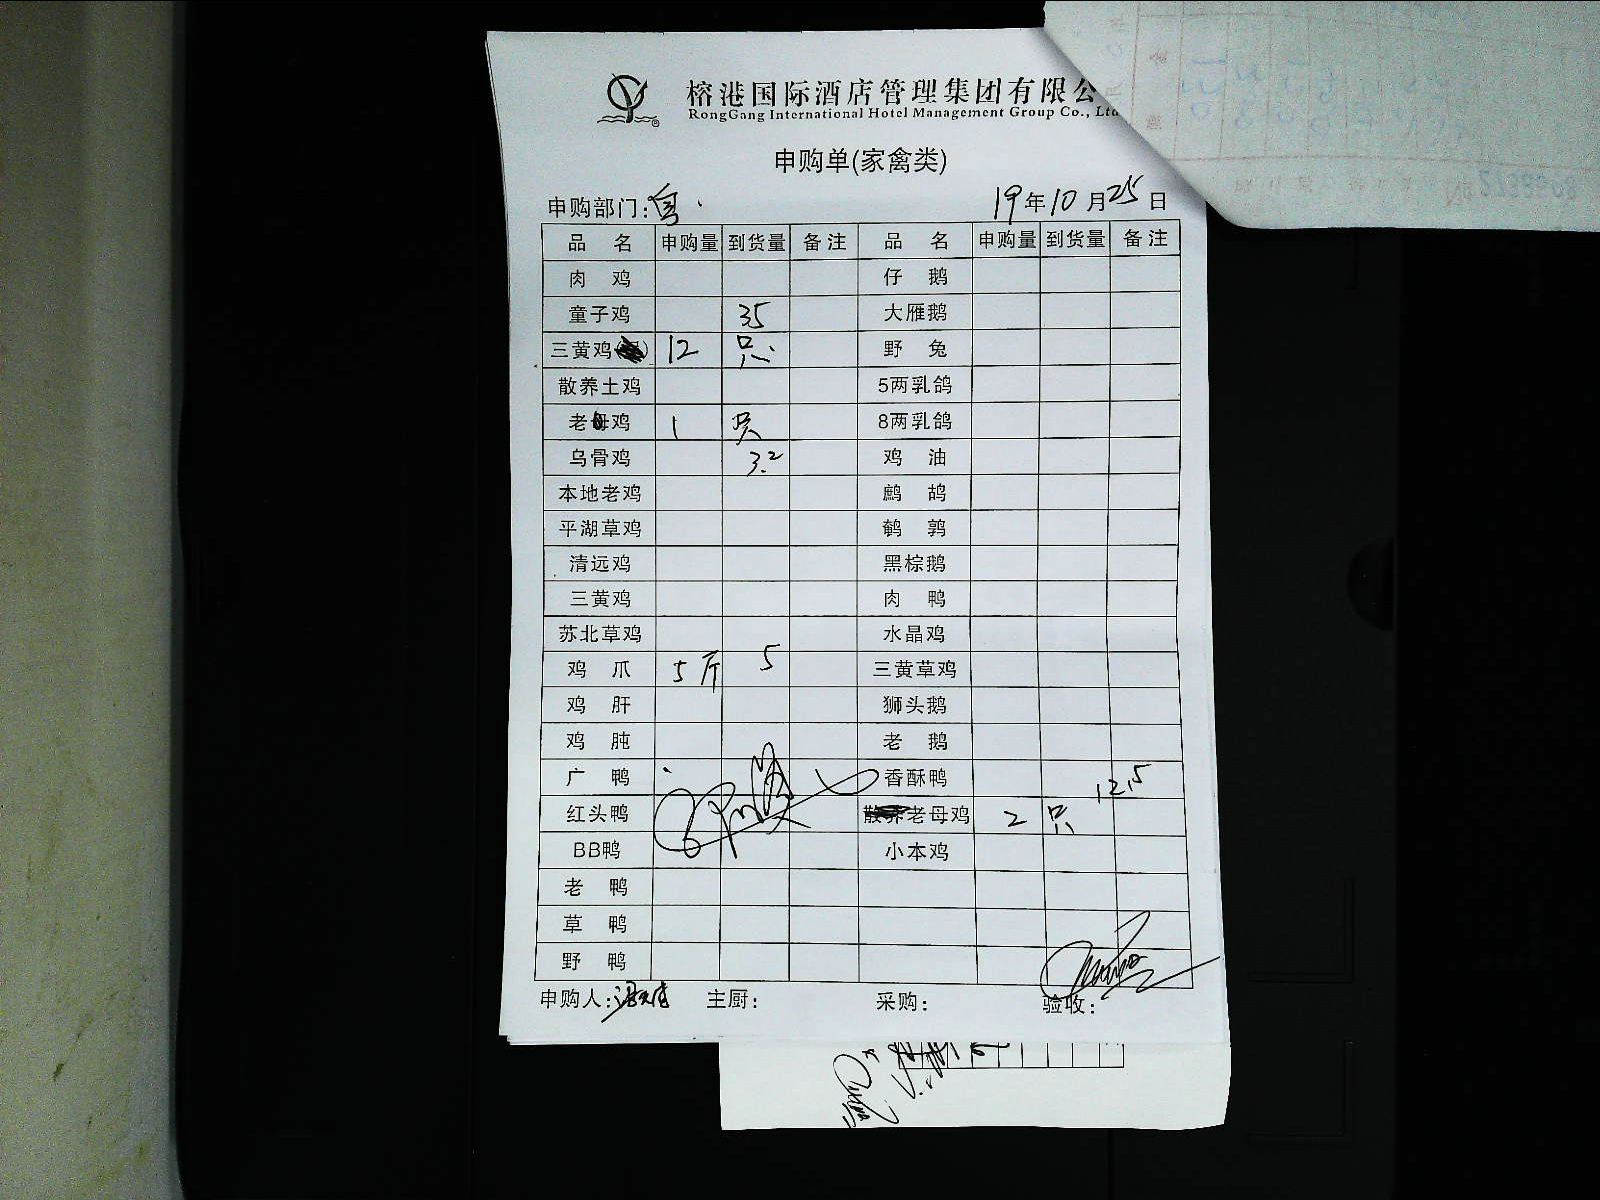 榕港国际酒店管理集团有限公
RongGang International Hotel Management Group Co., Ltd
申购单(家禽类)
申购部门: 19年10月25日
品名 申购量 到货量 备注 品名 申购量 到货量 备注
肉鸡 仔鹅
童子鸡 35 大雁鹅
三黄鸡 12 只 野兔
散养土鸡 5两乳鸽
老母鸡 1 只 8两乳鸽
乌骨鸡 3.2 鸡油
本地老鸡 鹧鸪
平湖草鸡 鹌鹑
清远鸡 黑棕鹅
三黄鸡 肉鸭
苏北草鸡 水晶鸡
鸡爪 5斤 5 三黄草鸡
鸡肝 狮头鹅
鸡肫 老鹅
广鸭 香酥鸭 12.5
红头鸭 散养老母鸡 2 只
BB鸭 小本鸡
老鸭
草鸭
野鸭
申购人: 主厨: 采购: 验收: